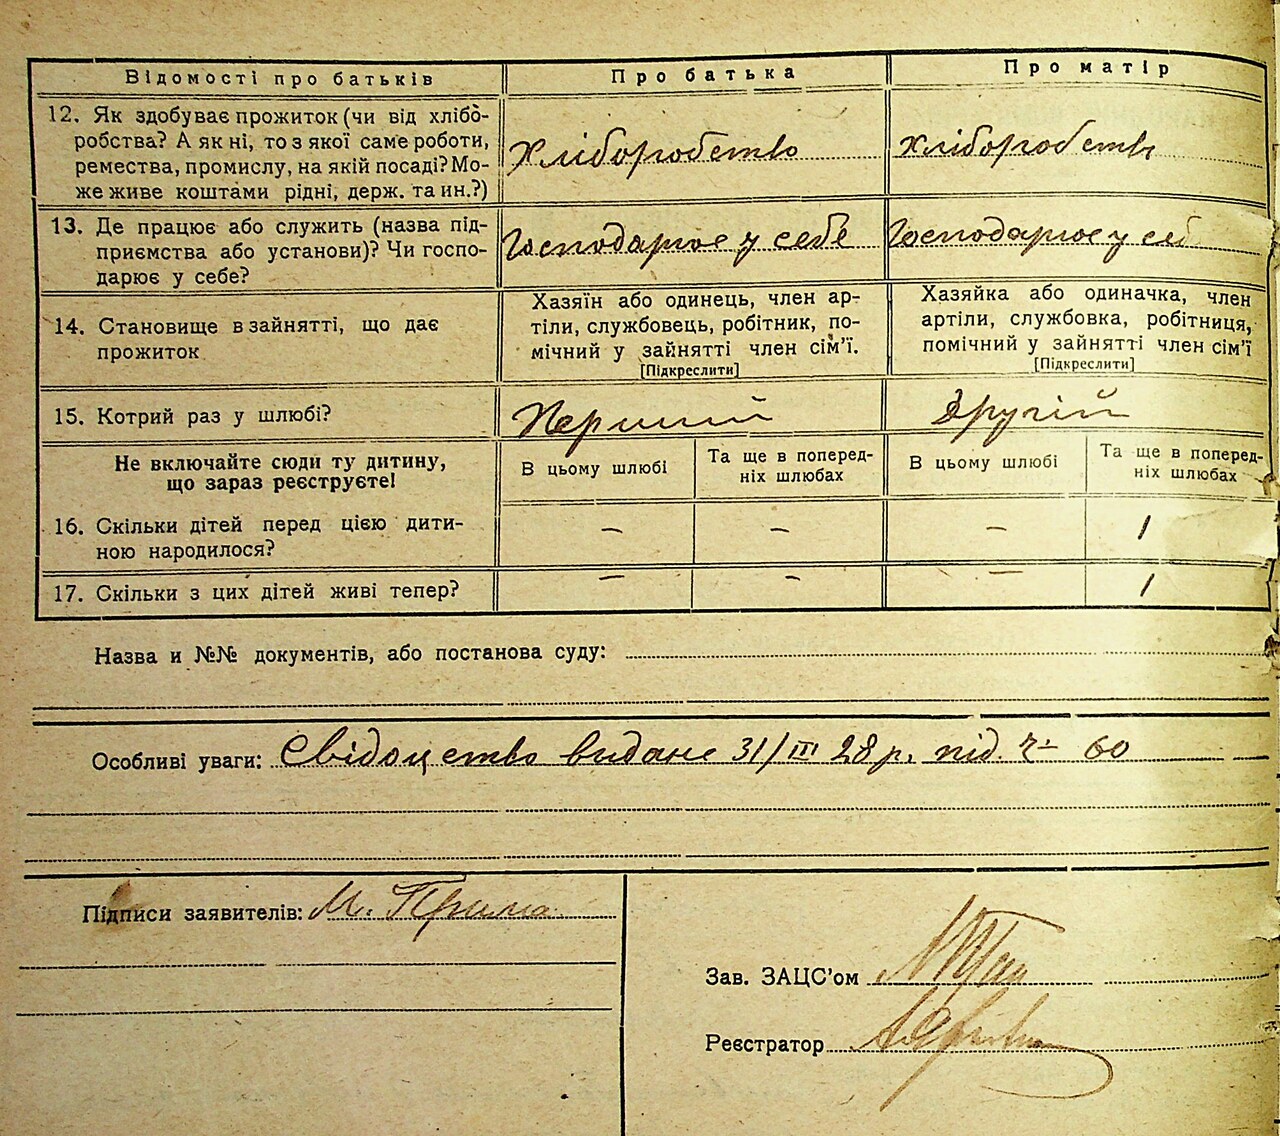 Відомості про батьків Про батька Про матір
12. Як здобуває прожиток (чи від хлібо-
робства? А як ні, то з якої саме роботи,
ремества, промислу, на якій посаді? Мо-
же живе коштами рідні, держ. та ин.?)
Хліборобство Хліборобство
13. Де працює або служить (назва під-
приємства або установи)? Чи госпо-
дарює у себе?
Господарює у себе Господарює у себ
14. Становище в зайнятті, що дає
прожиток
Хазяїн або одинець, член ар-
тіли, службовець, робітник, по-
мічний у зайнятті член сім’ї.
[Підкреслити]
Хазяйка або одиначка, член
артіли, службовка, робітниця,
помічний у зайнятті член сім’ї
[Підкреслити]
15. Котрий раз у шлюбі? Перший Другій
Не включайте сюди ту дитину,
що зараз реєструєте!
В цьому шлюбі
Та ще в поперед-
ніх шлюбах
В цьому шлюбі
Та ще в поперед-
ніх шлюбах
16. Скільки дітей перед цією дити-
ною народилося?
– – – 1
17. Скільки з цих дітей живі тепер? – – – 1
Назва и №№ документів, або постанова суду:
Особливі уваги: Свідоцтво видане 31/III 28 р. під. ч– 60
Підписи заявителів: М. Прима
Зав. ЗАЦС’ом
Реєстратор